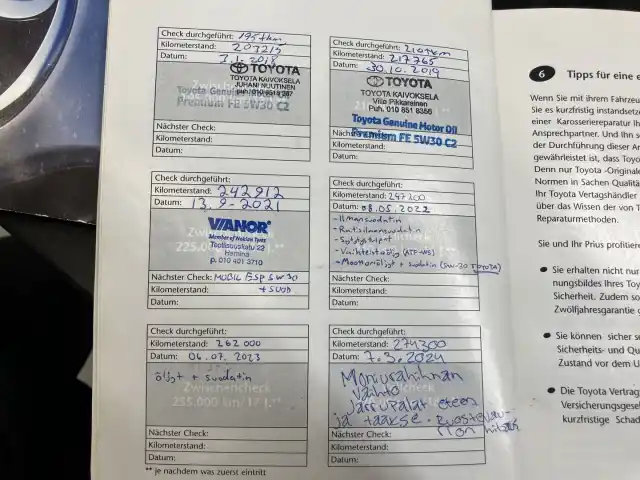 Check durchgeführt: 195tkm
Kilometerstand: 207215
Datum: 2.1.2018
TOYOTA
TOYOTA KAIVOKSELA
JUHANI NUUTINEN
Toyota Genuine Motor Oil
Premium FE 5W30 C2
Nächster Check:
Kilometerstand:
Datum:
Check durchgeführt: 210tkm
Kilometerstand: 217765
Datum: 30.10.2019
TOYOTA
TOYOTA KAIVOKSELA
Ville Pikkarainen
Puh. 010 851 8356
Toyota Genuine Motor Oil
Premium FE 5W30 C2
Nächster Check:
Kilometerstand:
Datum:
Check durchgeführt:
Kilometerstand: 242912
Datum: 13.9-2021
VIANOR
Member of Nokian Tyres
Teollisuuskatu 22
Hamina
p. 010 401 3710
225.000
Nächster Check: MOBIL ESP 5W30
Kilometerstand: + SUOD
Datum:
Check durchgeführt:
Kilometerstand: 247200
Datum: 08.05.2022
- Ilmansuodatin
- Raitisilmansuodatin
- Sytytystulpat
- Vaihteistoöljy (ATF-WS)
- Moottoriöljyt + suodatin (5W-30 TOYOTA)
Nächster Check:
Kilometerstand:
Datum:
Check durchgeführt:
Kilometerstand: 262000
Datum: 06.07.2023
öljyt + suodatin
Zwischencheck
255.000 km/17 J.**
Nächster Check:
Kilometerstand:
Datum:
Check durchgeführt:
Kilometerstand: 274300
Datum: 7.3.2024
Moniurahihnan
vaihto
Jarrupalat eteen
ja taakse.
Nächster Check:
Kilometerstand:
Datum:
** je nachdem was zuerst eintritt
6 Tipps für eine
Wenn Sie mit ihrem
Sie es kurzfristig
einer Karosseriereparatur
Ansprechpartner. Und Ihn
der Durchführung dieser
gewährleistet ist, dass
Denn nur Toyota -Originale
Normen in Sachen
Ihr Toyota Vertragshändler
über das Wissen der von
Reparaturmethoden.
Sie und Ihr Prius
● Sie erhalten nicht nur
nungsbildes Ihres
Sicherheit. Zudem
Zwölfjahresgarantie
● Sie können sicher
Sicherheits- und
Zustand vor dem
● Die Toyota
kurzfristige